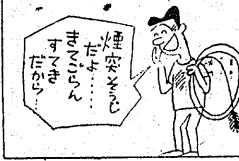 煙突そうじ
だよ……
きてごらん
すてき
だから…